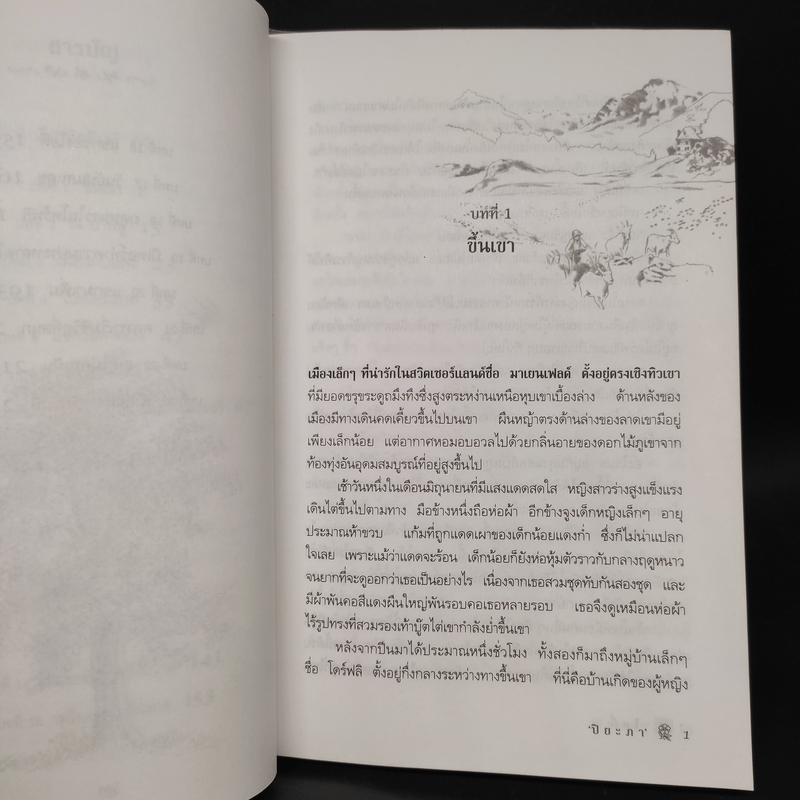 บทที่ 1
ขึ้นเขา
เมืองเล็กๆ ที่น่ารักในสวิตเซอร์แลนด์ชื่อ มาเยนเฟลด์ ตั้งอยู่ตรงเชิงทิวเขา
ที่มียอดขรุขระดูถมึงทึงซึ่งสูงตระหง่านเหนือหุบเขาเบื้องล่าง ด้านหลังของ
เมืองมีทางเดินคดเคี้ยวขึ้นไปบนเขา ผืนหญ้าตรงด้านล่างของลาดเขามีอยู่
เพียงเล็กน้อย แต่อากาศหอมอบอวลไปด้วยกลิ่นอายของดอกไม้ภูเขาจาก
ท้องทุ่งอันอุดมสมบูรณ์ที่อยู่สูงขึ้นไป
เช้าวันหนึ่งในเดือนมิถุนายนที่มีแสงแดดสดใส หญิงสาวร่างสูงแข็งแรง
เดินไต่ขึ้นไปตามทาง มือข้างหนึ่งถือห่อผ้า อีกข้างจูงเด็กหญิงเล็กๆ อายุ
ประมาณห้าขวบ แก้มที่ถูกแดดเผาของเด็กน้อยแดงก่ำ ซึ่งก็ไม่น่าแปลก
ใจเลย เพราะแม้ว่าแดดจะร้อน เด็กน้อยก็ยังห่อหุ้มตัวราวกับกลางฤดูหนาว
จนยากที่จะดูออกว่าเธอเป็นอย่างไร เนื่องจากเธอสวมชุดทับกันสองชุด และ
มีผ้าพันคอสีแดงผืนใหญ่พันรอบคอเธอหลายรอบ เธอจึงดูเหมือนห่อผ้า
ไร้รูปทรงที่สวมรองเท้าบู๊ตไต่เขากำลังย่ำขึ้นเขา
หลังจากปีนมาได้ประมาณหนึ่งชั่วโมง ทั้งสองก็มาถึงหมู่บ้านเล็กๆ
ชื่อ ดอร์ฟลิ ตั้งอยู่กึ่งกลางระหว่างทางขึ้นเขา ที่นี่คือบ้านเกิดของผู้หญิง
'ปิยะภา' 1